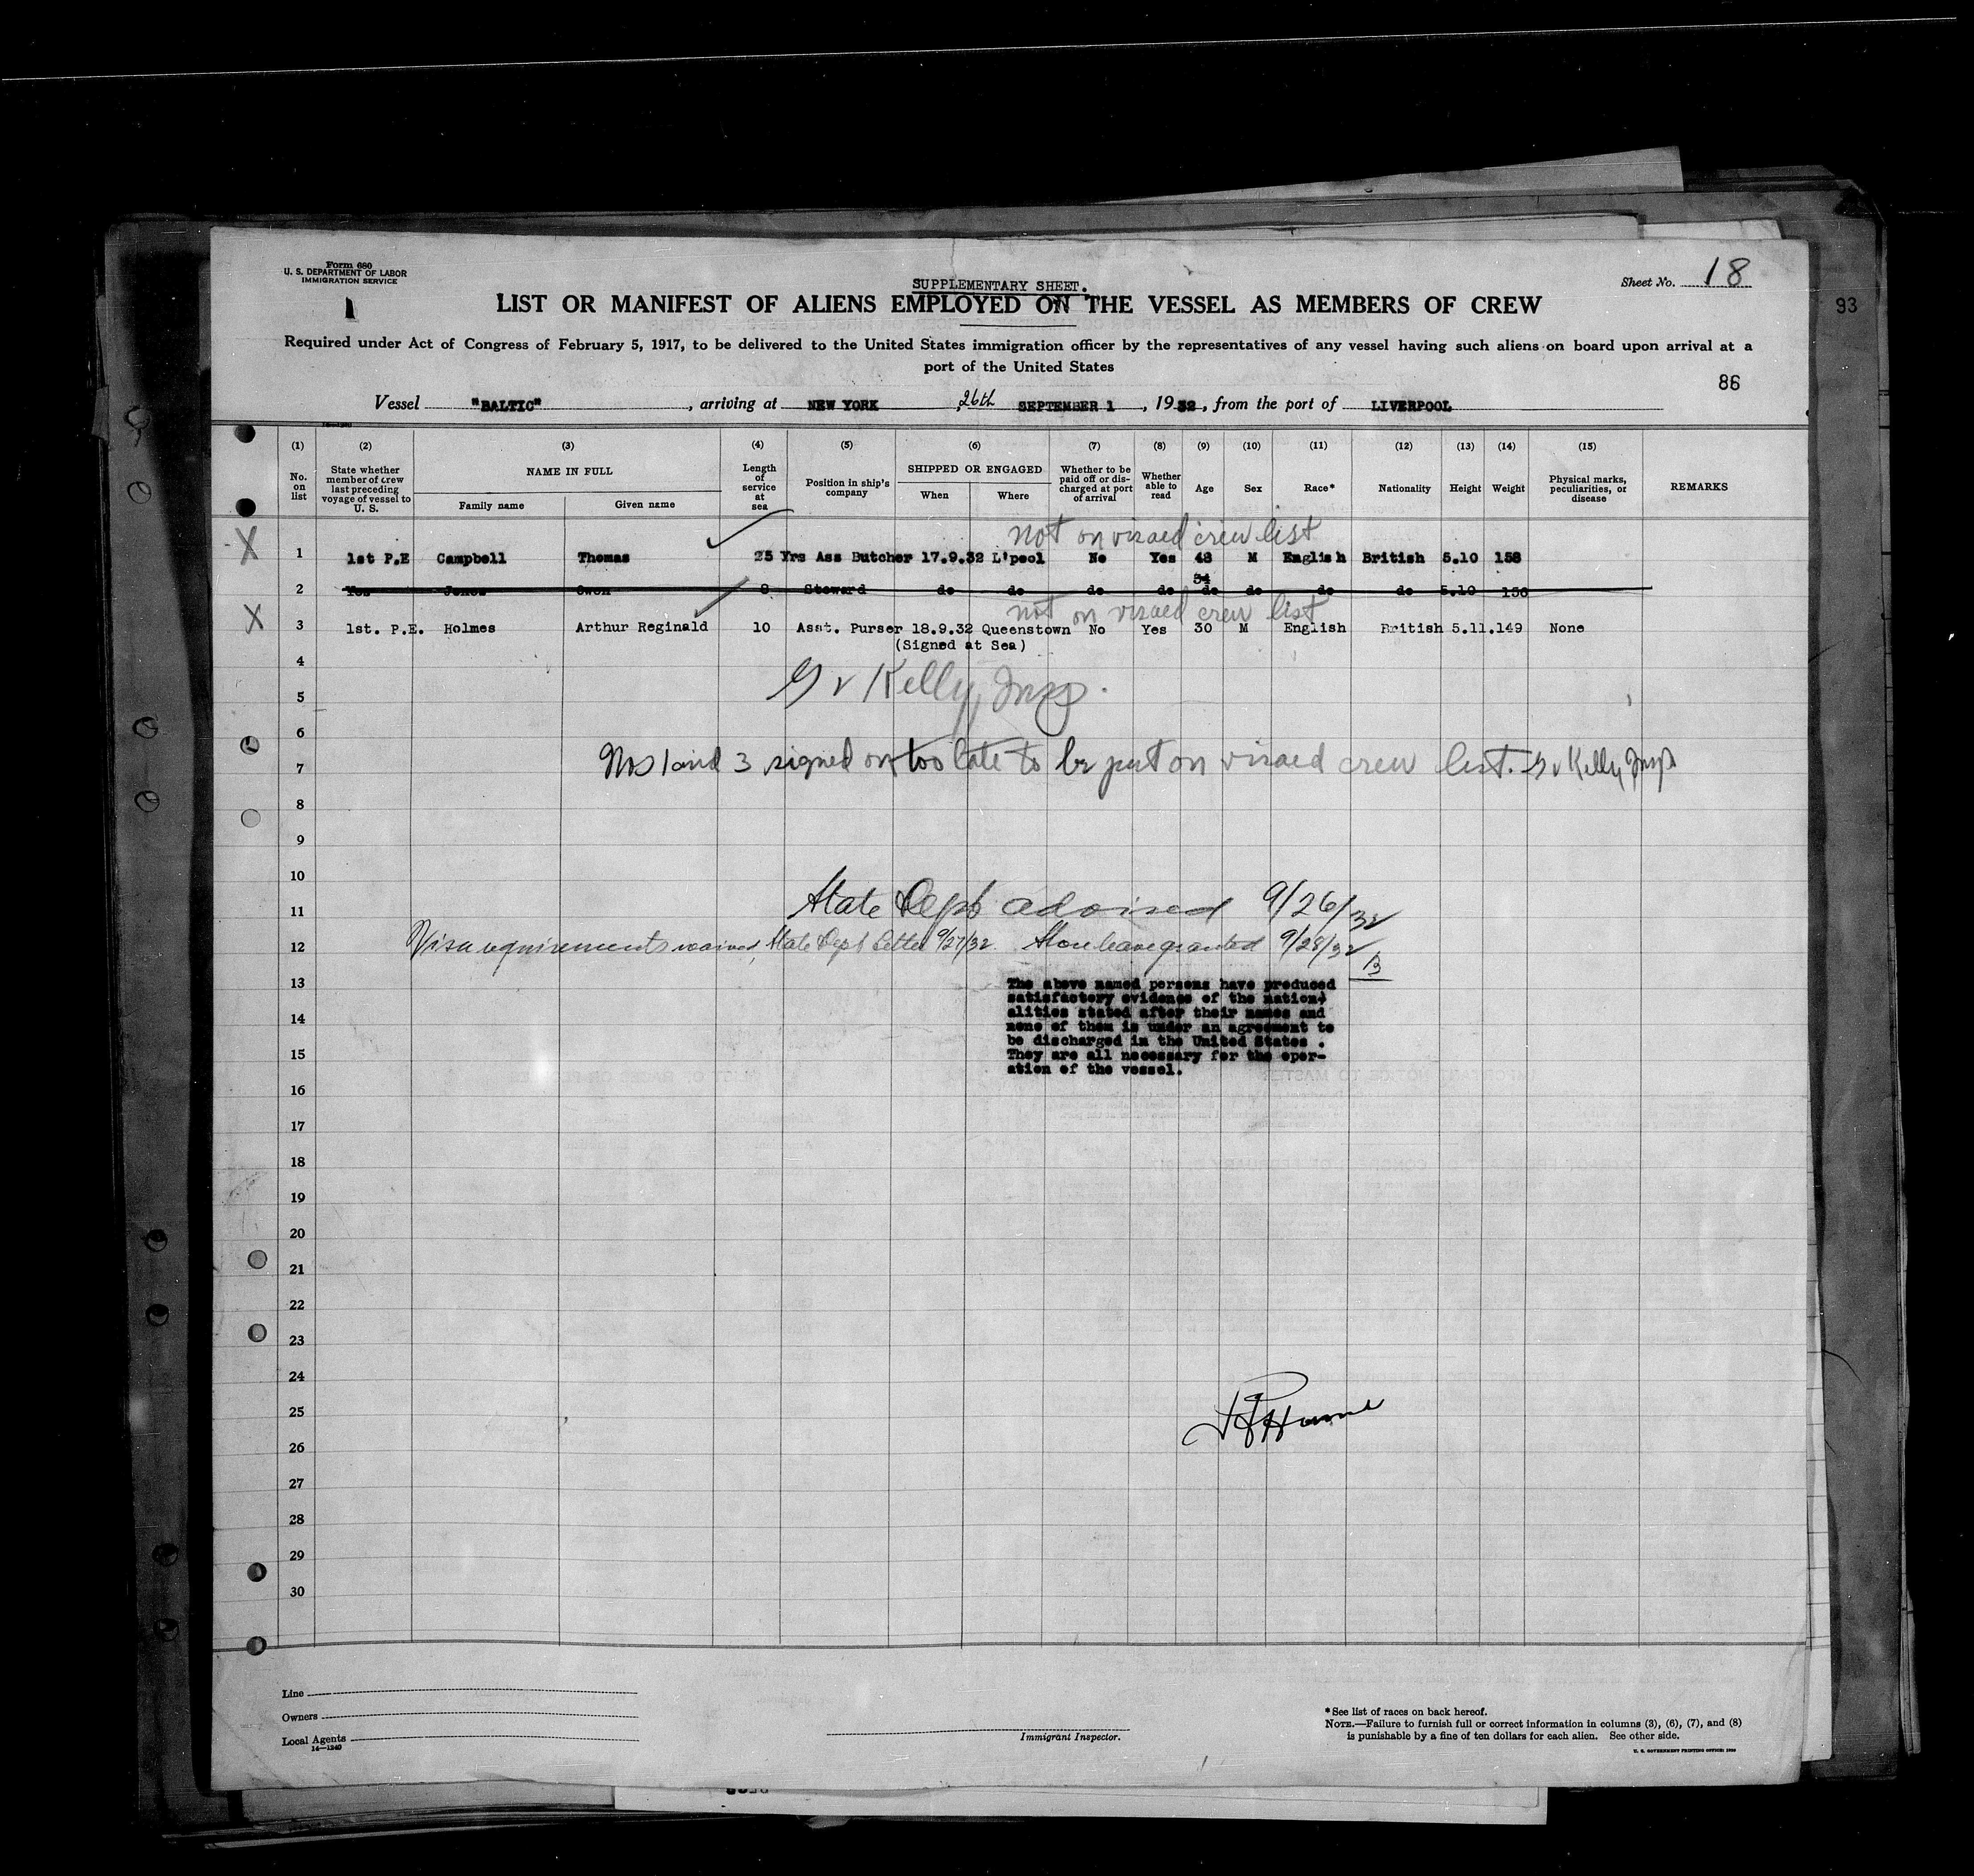 Form 680
U. S. DEPARTMENT OF LABOR
IMMIGRATION SERVICE
1
SUPPLEMENTARY SHEET.
Sheet No. 18
LIST OR MANIFEST OF ALIENS EMPLOYED ON THE VESSEL AS MEMBERS OF CREW
93
Required under Act of Congress of February 5, 1917, to be delivered to the United States immigration officer by the representatives of any vessel having such aliens on board upon arrival at a
port of the United States
86
Vessel "BALTIC", arriving at NEW YORK 26th SEPTEMBER 1, 1932, from the port of LIVERPOOL
(1) (2) (3) (4) (5) (6) (7) (8) (9) (10) (11) (12) (13) (14) (15)
No. on list
State whether member of crew last preceding voyage of vessel to U. S.
NAME IN FULL
Family name
Given name
Length of service at sea
Position in ship's company
SHIPPED OR ENGAGED
When
Where
Whether to be paid off or discharged at port of arrival
Whether able to read
Age
Sex
Race*
Nationality
Height
Weight
Physical marks, peculiarities, or disease
REMARKS
not on visaed crew list
X 1 1st P.E Campbell Thomas 25 Yrs Ass Butcher 17.9.32 L'pool No Yes 48 M English British 5.10 158
34
2 Yes Jones Owen 8 Steward do do do do do do do do 5.10 156
not on visaed crew list
X 3 1st. P.E. Holmes Arthur Reginald 10 Asst. Purser 18.9.32 Queenstown No Yes 30 M English British 5.11. 149 None
(Signed at Sea)
4
Kelly, Insp.
5
6
7 Nos 1 and 3 signed on too late to be put on visaed crew list. Kelly Insp
8
9
10
11 State Dept advised 9/26/32
12 Visa requirements waived, State Dept letter 9/27/32 Shore leave granted 9/28/32
13
The above named persons have produced
satisfactory evidence of the nation-
14
alities stated after their names and
none of them is under an agreement to
be discharged in the United States .
15
They are all necessary for the oper-
ation of the vessel.
16
17
18
19
20
21
22
23
24
25
26
27
28
29
30
Line
Owners
Local Agents
14—1240
Immigrant Inspector.
* See list of races on back hereof.
NOTE.—Failure to furnish full or correct information in columns (3), (6), (7), and (8)
is punishable by a fine of ten dollars for each alien. See other side.